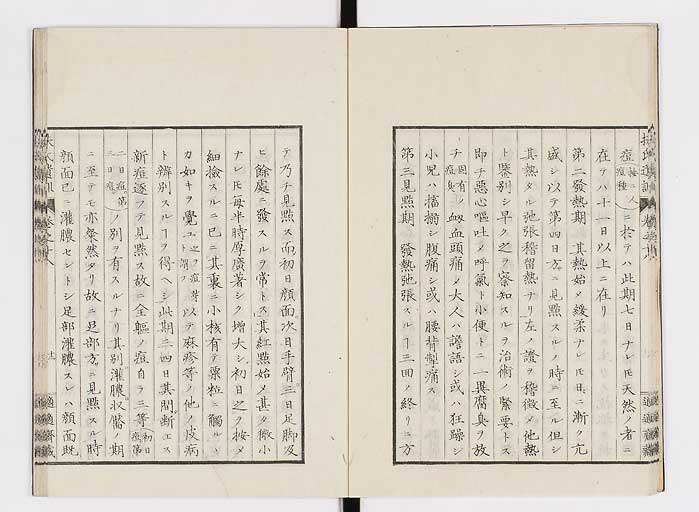 痘(接ニ人痘種)ニ於テハ此期七日ナレ𪜈天然ノ者ニ
在テハ十一日以上ニ在リ
第二發熱期 其熱始メ緩柔ナレ𪜈日ニ漸ク亢
盛シ以テ第四日方ニ見點スルノ時ニ至ル但シ
其熱タル弛張稽留熱ナリ左ノ證ヲ稽徴メ他熱
ト鑒別シ早ク之ヲ察知スルヲ治術ノ緊要トス
即チ惡心嘔吐メ呼氣ト小便トニ一異腐臭ヲ放
チ(固有ノ痘臭)衂血頭痛メ大人ハ譫語シ或ハ狂躁シ
小児ハ搐搦シ腹痛シ或ハ腰背掣痛ス
第三見點期 發熱弛張スルヿ三回ノ終リニ方
テ乃チ見點ス而初日顔面次日手臂三日足脚及
ヒ餘處ニ發スルヲ常トス其紅點始メ甚タ微小
ナレ𪜈毎半時厚廣著シク増大シ初日之ヲ按メ
細撿スルニ已ニ其裏ニ小核有テ粟粒ニ觸ルヽ
カ如キヲ覺ユ(之ヲ痘ト謂フ)以テ麻疹等ノ他ノ皮病
ト辨別スルヿヲ得ヘシ此期三四日其間断エス
新痘逐フテ見點ス故ニ全軀ノ痘自ラ三等(初日痘第
二日痘第三日痘)ノ別ヲ有スルナリ其別灌膿収靨ノ期
ニ至テモ亦粲然タリ故ニ足部方ニ見點スル時
顔面已ニ灌膿セントシ足部灌膿スレハ顔面既
適適齋藏